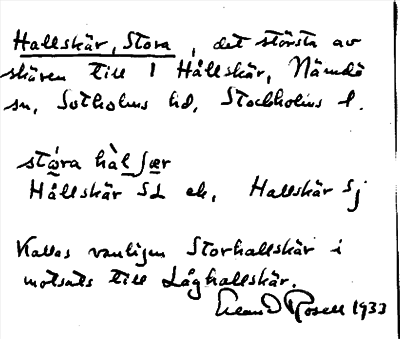 Hallskär, Stora, det största av
skären till 1 Hållskär, Nämdö
sn, Sotholms hd, Stockholms l.
stó̱ra hà̱l ʃæ̱r
Hållskär SL ek, Hallskär Sj
Kallas vanligen Storhallskär i
motsats till Låghallskär.
Rosell 1933